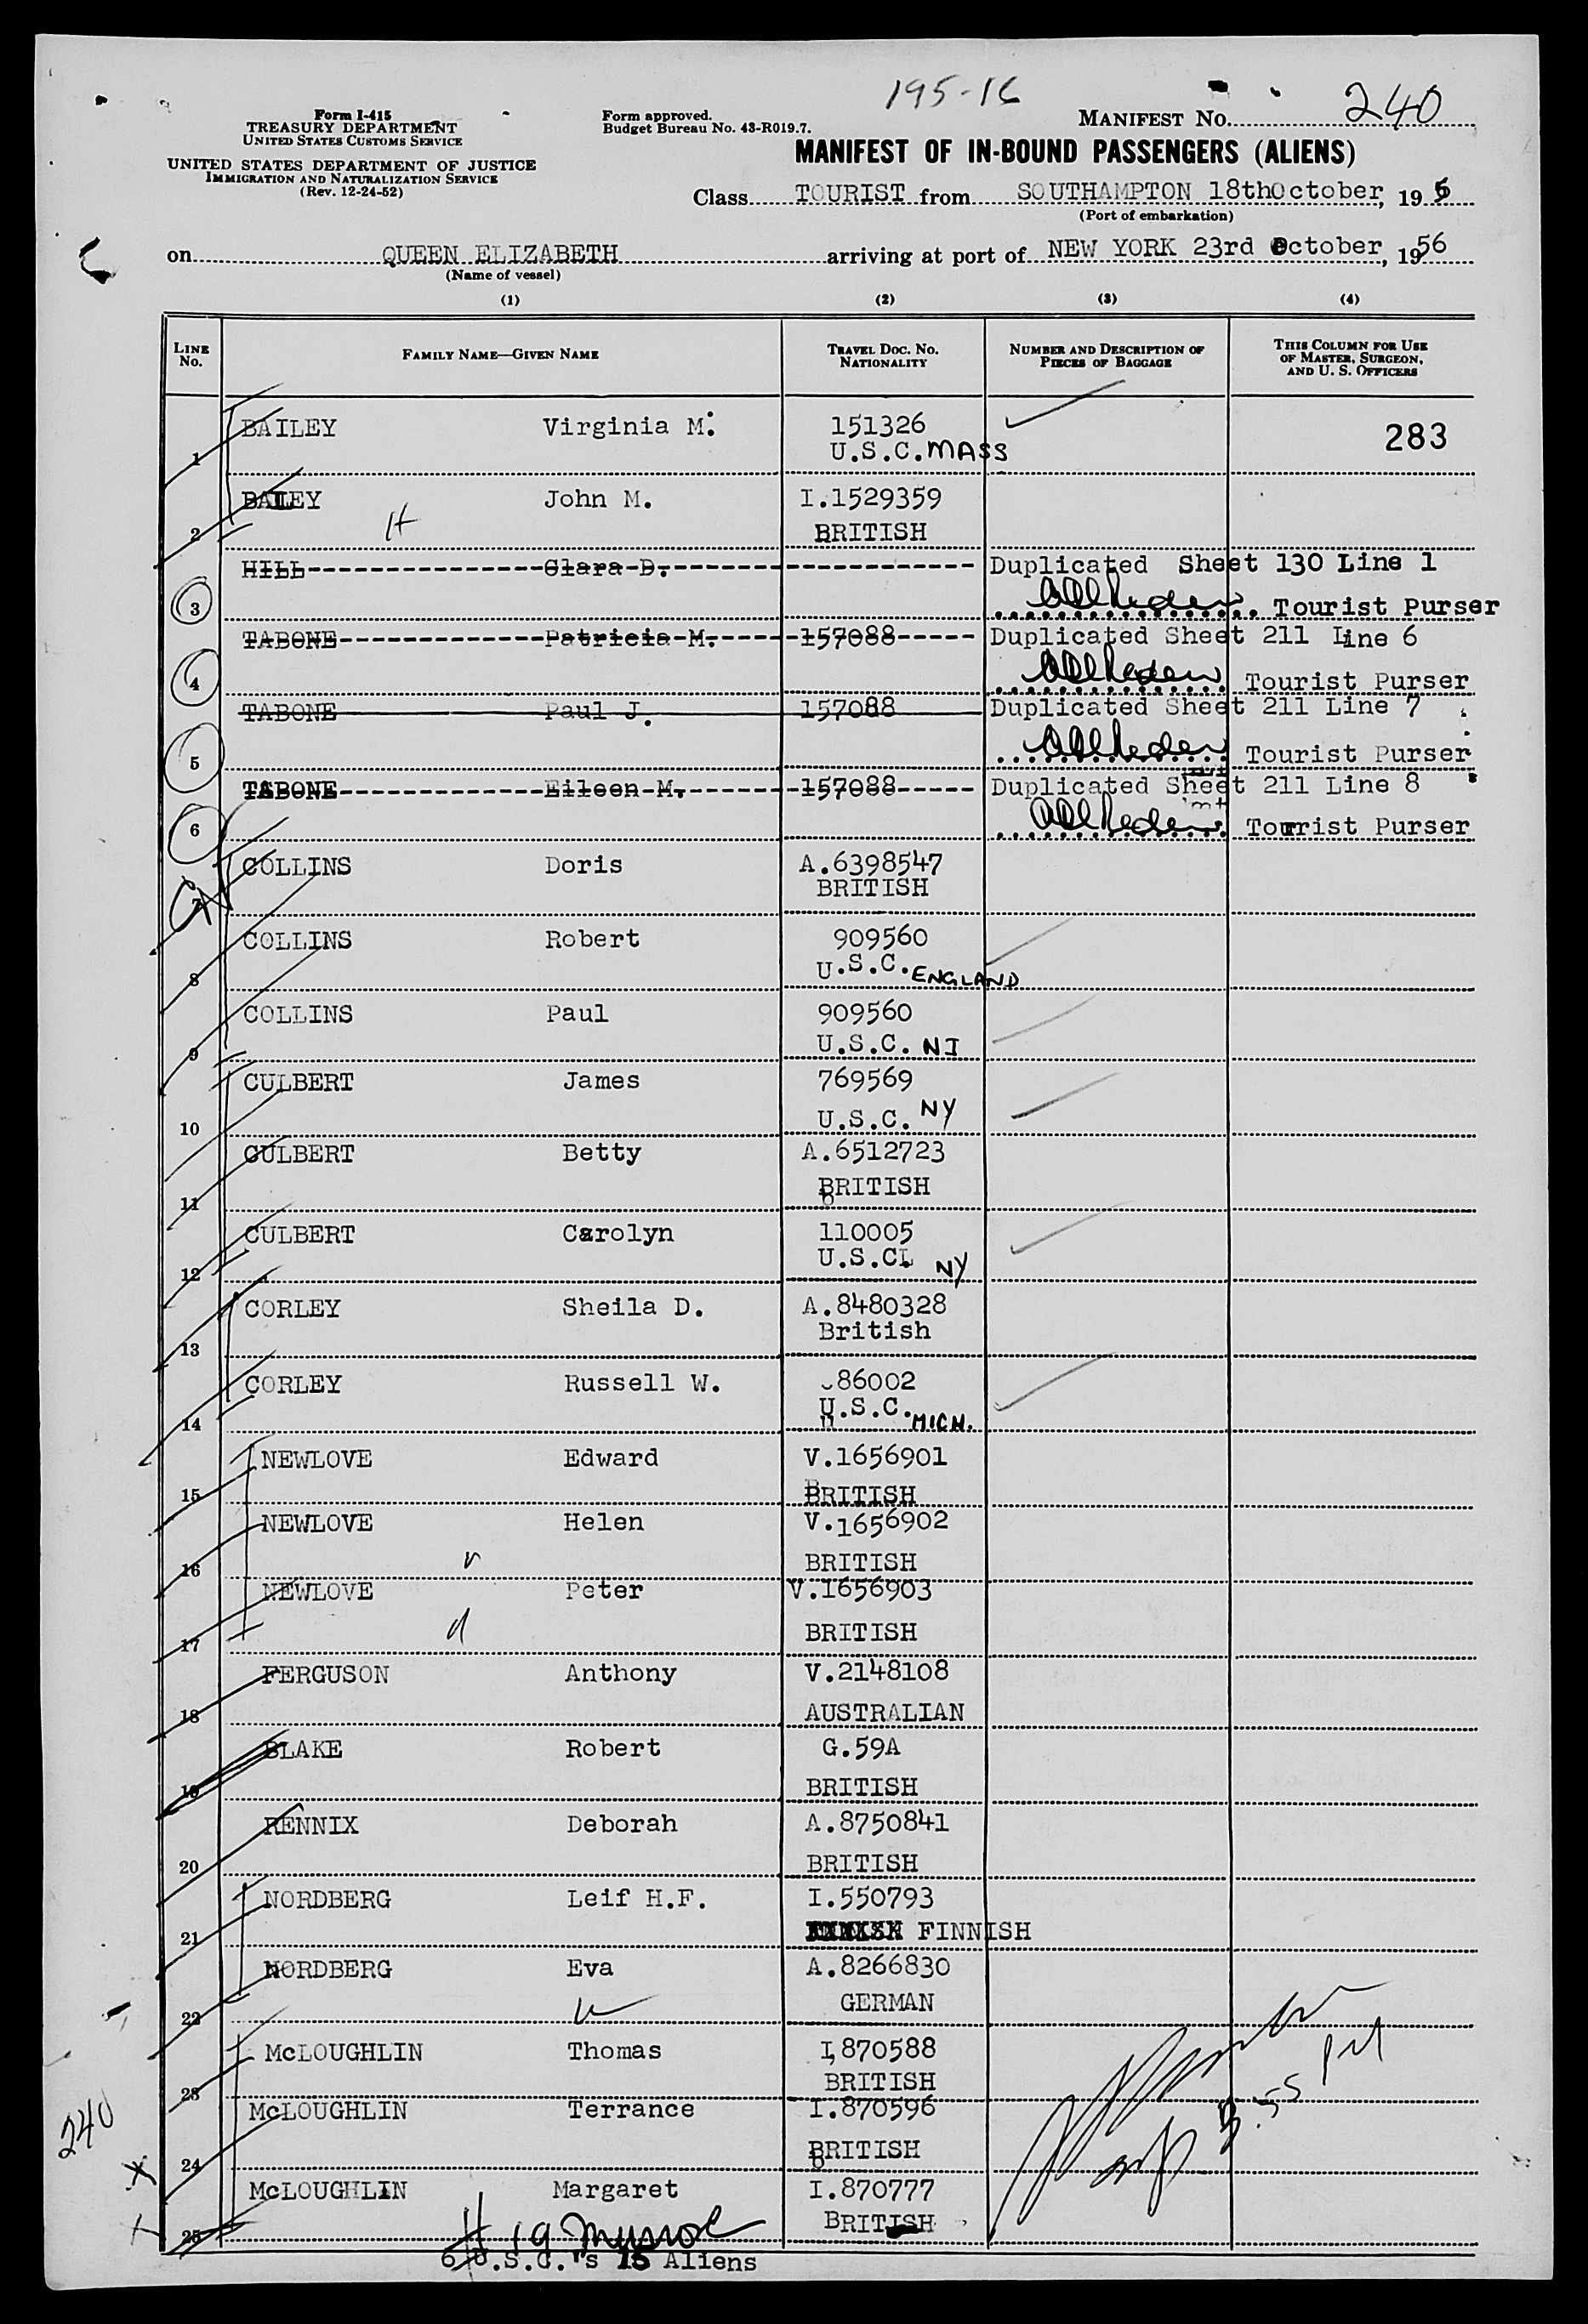 195-16
Form I-415
TREASURY DEPARTMENT
UNITED STATES CUSTOMS SERVICE
UNITED STATES DEPARTMENT OF JUSTICE
IMMIGRATION AND NATURALIZATION SERVICE
(Rev. 12-24-52)
Form approved.
Budget Bureau No. 43-R019.7.
MANIFEST No. 240
MANIFEST OF IN-BOUND PASSENGERS (ALIENS)
Class TOURIST from SOUTHAMPTON 18thOctober, 195
(Port of embarkation)
on QUEEN ELIZABETH arriving at port of NEW YORK 23rd October, 1956
(Name of vessel)
(1) (2) (3) (4)
LINE No. FAMILY NAME—GIVEN NAME TRAVEL DOC. NO. NATIONALITY NUMBER AND DESCRIPTION OF PIECES OF BAGGAGE THIS COLUMN FOR USE OF MASTER, SURGEON, AND U. S. OFFICERS
1 BAILEY Virginia M. 151326 283
U.S.C. MASS
2 BAILEY John M. I.1529359
H BRITISH
3 HILL Clara D. Duplicated Sheet 130 Line 1
Tourist Purser
4 TABONE Patricia M. 157088 Duplicated Sheet 211 Line 6
Tourist Purser
5 TABONE Paul J. 157088 Duplicated Sheet 211 Line 7
Tourist Purser
6 TABONE Eileen M. 157088 Duplicated Sheet 211 Line 8
Tourist Purser
7 COLLINS Doris A.6398547
BRITISH
8 COLLINS Robert 909560
U.S.C. ENGLAND
9 COLLINS Paul 909560
U.S.C. NJ
10 CULBERT James 769569
U.S.C. NY
11 CULBERT Betty A.6512723
BRITISH
12 CULBERT Carolyn 110005
U.S.C. NY
13 CORLEY Sheila D. A.8480328
British
14 CORLEY Russell W. 86002
U.S.C. MICH.
15 NEWLOVE Edward V.1656901
BRITISH
16 NEWLOVE Helen V.1656902
BRITISH
17 NEWLOVE Peter V.1656903
BRITISH
18 FERGUSON Anthony V.2148108
AUSTRALIAN
19 BLAKE Robert G.59A
BRITISH
20 RENNIX Deborah A.8750841
BRITISH
21 NORDBERG Leif H.F. I.550793
FINNISH
22 NORDBERG Eva A.8266830
GERMAN
23 McLOUGHLIN Thomas I,870588
BRITISH
24 McLOUGHLIN Terrance I.870596
BRITISH
25 McLOUGHLIN Margaret I.870777
BRITISH
240
3.55 PM
19 Munroe
6 U.S.C."s 15 Aliens